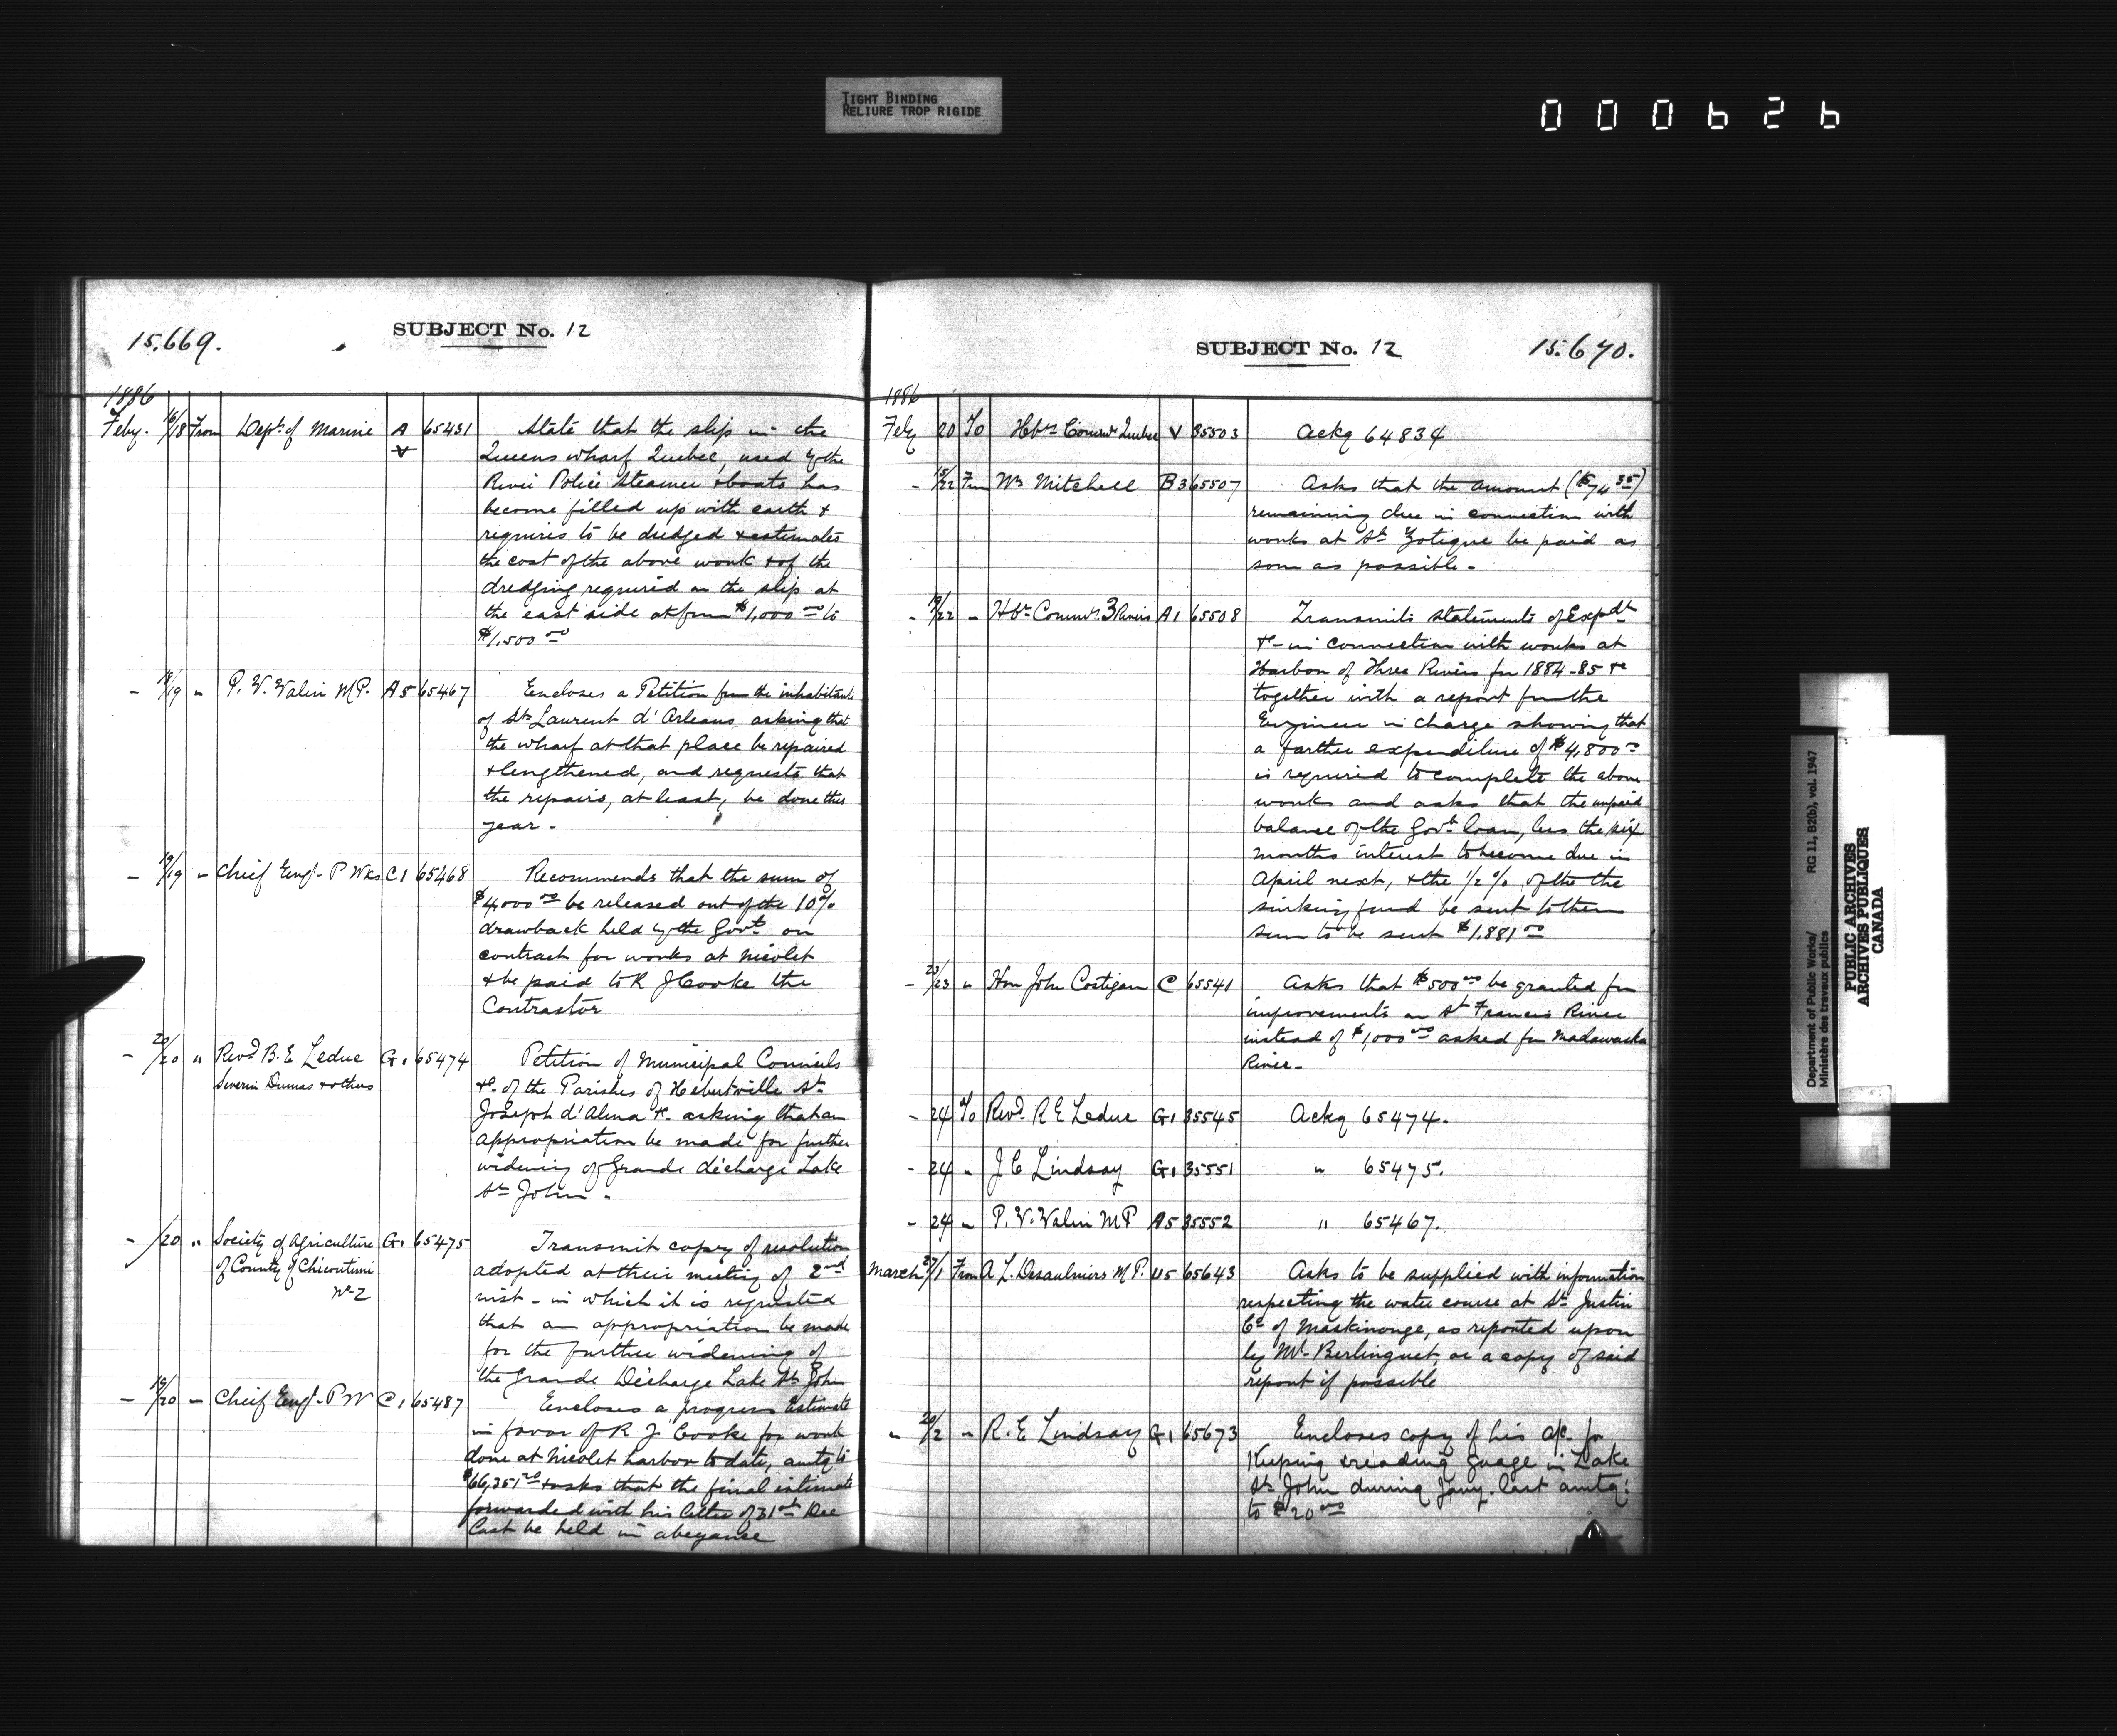 TIGHT BINDING
RELIURE TROP RIGIDE
000626
15.669.
SUBJECT No. 12
1886
Feby. 16/18 From Dept. of Marine A V 65451 State that the slip in the
Queens wharf Quebec, used by the
River Police Steamer & boats has
become filled up with earth &
requires to be dredged & estimates
the cost of the above work & of the
dredging required on the slip at
the east side at from $1,000 00 to
$1,500 00
- 18/19 " P. V. Valin M.P. A5 65467 Encloses a Petition from the inhabitants
of St. Laurent d'Orleans asking that
the wharf at that place be repaired
& lengthened, and requests that
the repairs, at least, be done this
year -
- 19/19 " Chief Engr. P Wks C1 65468 Recommends that the sum of
$4000 00 be released out of the 10%
drawback held by the Govt. on
contract for works at Nicolet
& be paid to R J Cooke the
Contractor
- 20/20 " Revd. B. E Leduc G1 65474 Petition of Municipal Councils
Severin Dumas & others &c. of the Parishes of Hebertville St.
Joseph d'Alma &c. asking that an
appropriation be made for further
widening of Grande décharge Lake
St. John -
- /20 " Society of Agriculture G1 65475 Transmit copy of resolution
of County of Chicoutimi adopted at their meeting of 2nd
No. 2 inst - in which it is requested
that an appropriation be made
for the further widening of
the Grande Décharge Lake St. John
- 19/20 " Chief Engr. P W C1 65487 Encloses a progress Estimate
in favor of R J Cooke for work
done at Nicolet harbor to date, amtg to
& asks that the final estimate
forwarded with his letter of 31st Dec
last be held in abeyance
SUBJECT No. 12
15.670.
1886
Feby 20 To Hbr. Commrs. Quebec V 35503 Ackg 64834
- 15/22 From Wm Mitchell B3 65507 Asks that the amount ($74 35)
remaining due in connection with
works at St. Zotique be paid as
soon as possible -
- 19/22 " Hbr. Commrs. 3 Rivers A1 65508 Transmits statements of Expdt.
&c - in connection with works at
Harbor of Three Rivers for 1884-85 &c
together with a report from the
Engineer in charge showing that
a further expenditure of $4,800 00
is required to complete the above
works and asks that the unpaid
balance of the Govt. loan, less the six
months interest to become due in
April next, & the 1/2 % of the the
sinking fund be sent to them
sum to be sent $1,881 00
- 23/23 " Hon John Costigan C 65541 Asks that $500 00 be granted for
improvements on St Francis River
instead of $1,000 00 asked for Madawaska
River -
- 24 To Revd. R E Leduc G1 35545 Ackg 65474.
- 24 " J C Lindsay G1 35551 " 65475.
- 24 " P. V. Valin M P A5 35552 " 65467.
March 27/1 From A L. Desaulniers M P. 65643 Asks to be supplied with information
respecting the water course at St. Justin
Co. of Maskinonge, as reported upon
by Mr. Berlinguet, or a copy of said
report if possible
" 20/2 " R. E Lindsay G1 65673 Encloses copy of his a/c. for
Keeping & reading Guage in Lake
St. John during Jany. last amtg:
to $20 00
Department of Public Works/
Ministère des travaux publics
RG 11, B2(b), vol. 1947
PUBLIC ARCHIVES
ARCHIVES PUBLIQUES
CANADA